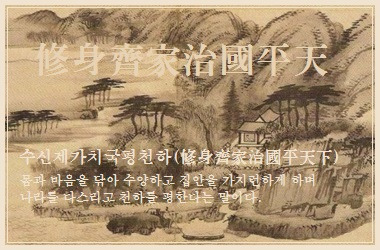 修身齊家治國平天
수신제가치국평천하(修身齊家治國平天下)
몸과 마음을 닦아 수양하고 집안을 가지런하게 하며
나라를 다스리고 천하를 평한다는 말이다.